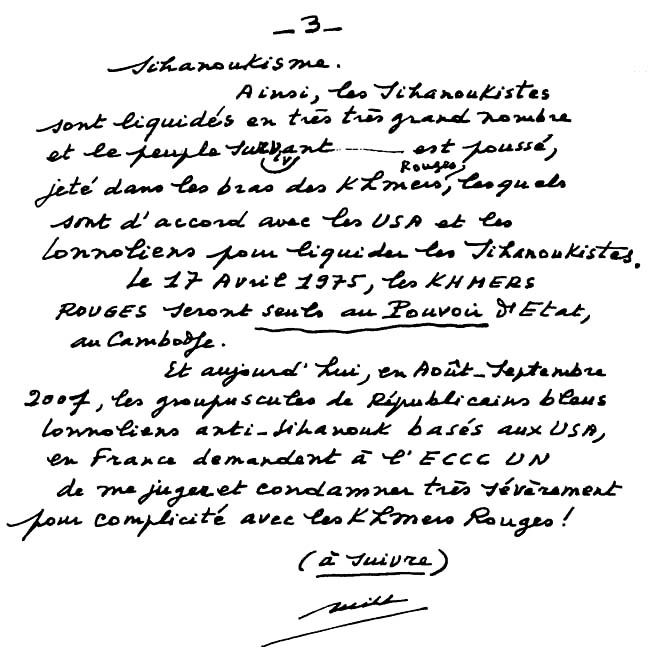 – 3 –
Sihanoukisme.
Ainsi, les Sihanoukistes
sont liquidés en très très grand nombre
et le peuple survivant est poussé,
jeté dans les bras des Khmers Rouges, lesquels
sont d'accord avec les USA et les
Lonnoliens pour liquider les Sihanoukistes.
Le 17 Avril 1975, les KHMERS
ROUGES seront seuls au Pouvoir d'Etat,
au Cambodge.
Et aujourd'hui, en Août-Septembre
2007, les groupuscules de Républicains bleus
Lonnoliens anti-Sihanouk basés aux USA,
en France demandent à l'ECCC UN
de me juger et condamner très sévèrement
pour complicité avec les Khmers Rouges !
(à suivre)